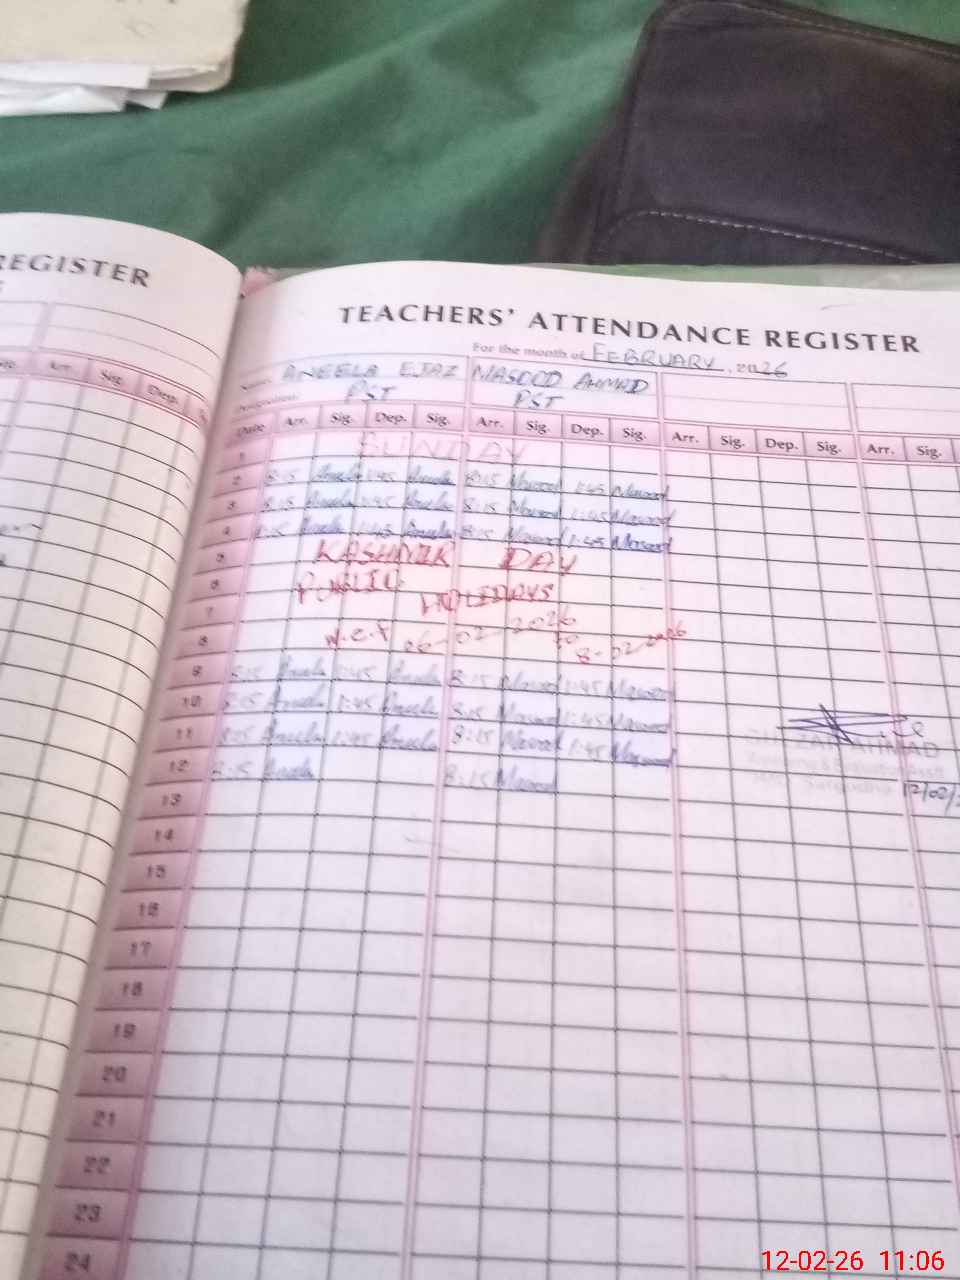 REGISTER
Arr. Sig. Dep.
TEACHERS' ATTENDANCE REGISTER
For the month of FEBRUARY, 2026
Name: ANEELA EJAZ MASOOD AHMAD
Designation: PST PST
Date Arr. Sig. Dep. Sig. Arr. Sig. Dep. Sig. Arr. Sig. Dep. Sig. Arr. Sig.
1 SUNDAY
2 8:15 Aneela 1:45 Aneela 8:15 Masood 1:45 Masood
3 8:15 Aneela 1:45 Aneela 8:15 Masood 1:45 Masood
4 8:15 Aneela 1:45 Aneela 8:15 Masood 1:45 Masood
5 KASHMIR DAY
6 PUBLIC HOLIDAYS
7
8 w.e.f 06-02-2026 to 8-02-2026
9 8:15 Aneela 1:45 Aneela 8:15 Masood 1:45 Masood
10 8:15 Aneela 1:45 Aneela 8:15 Masood 1:45 Masood
11 8:15 Aneela 1:45 Aneela 8:15 Masood 1:45 Masood
12 8:15 Aneela 8:15 Masood
AHMAD
Monitoring & Evaluation Asstt
Sargodha 12/02/
13
14
15
16
17
18
19
20
21
22
23
24
12-02-26 11:06